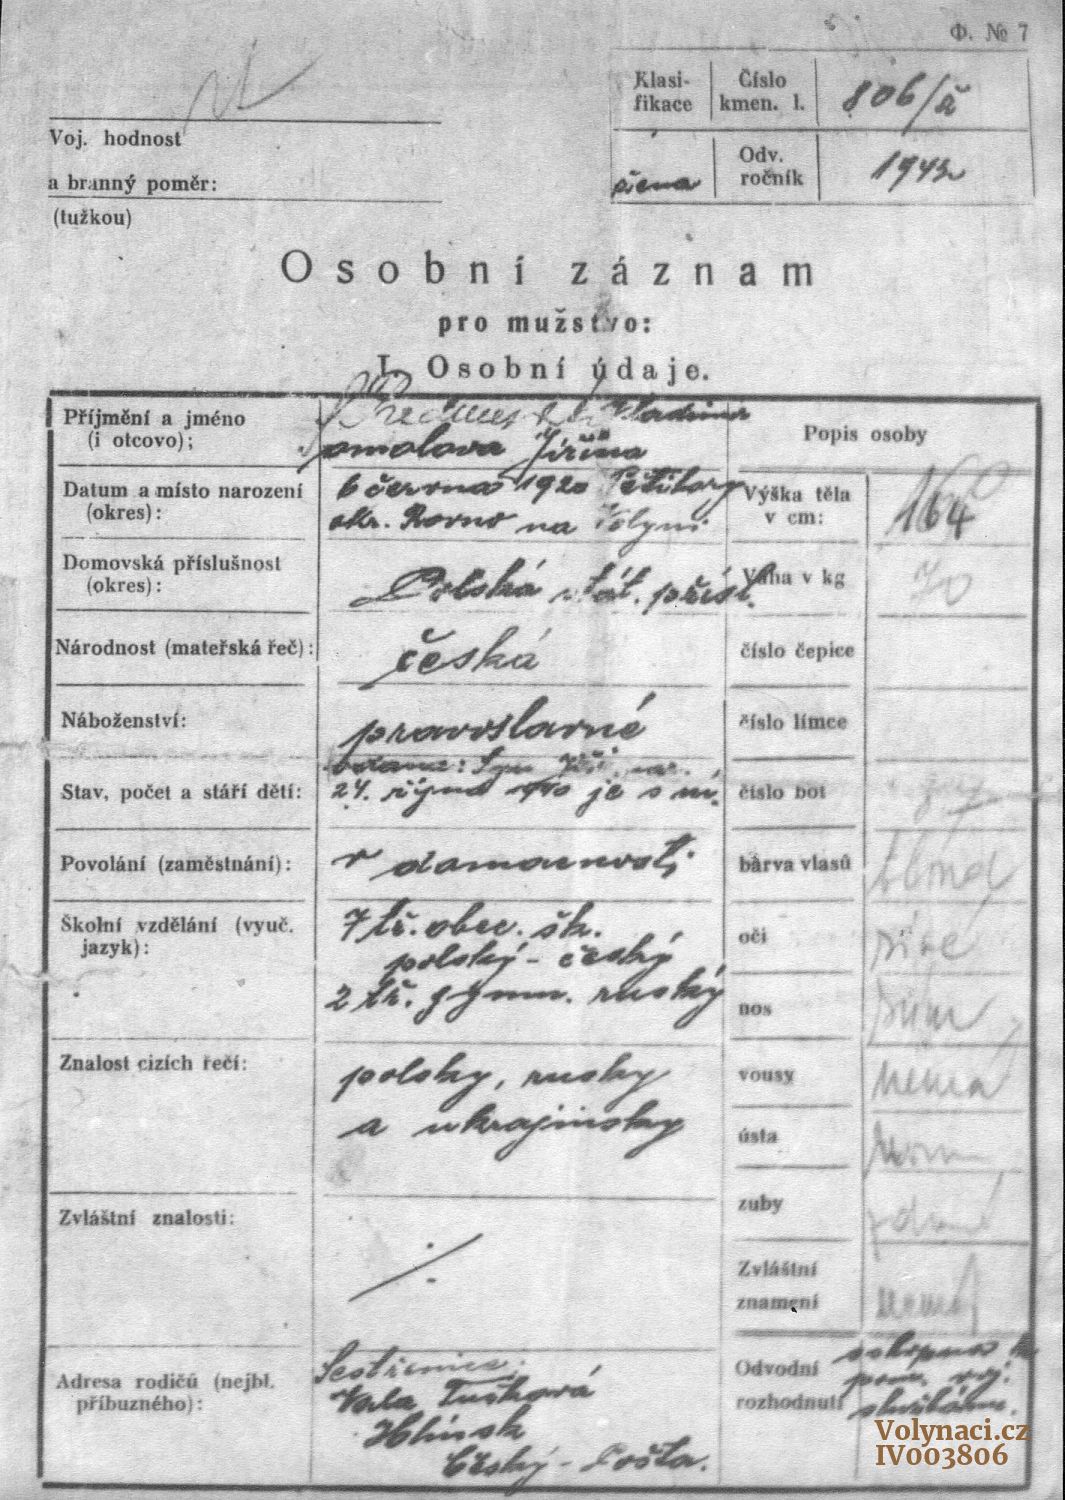 Ф. № 7
Klasi-
fikace
Číslo
kmen. l.
806/ž
žena
Odv.
ročník
1943
Voj. hodnost
a branný poměr:
(tužkou)
Osobní záznam
pro mužstvo:
I. Osobní údaje.
Příjmění a jméno
(i otcovo);
Jiřina
Datum a místo narození
(okres):
6 června 1920
okr. Rovno na Volyni
Domovská příslušnost
(okres):
Polská stát. přísl.
Národnost (mateřská řeč):
česká
Náboženství:
pravoslavné
Stav, počet a stáří dětí:
vdaná: Syn Jiří nar.
24. října 1940 je s ní.
Povolání (zaměstnání):
v domácnosti
Školní vzdělání (vyuč.
jazyk):
7 tř. obec. šk.
polský - český
2 tř. gymn. ruský
Znalost cizích řečí:
polsky, rusky
a ukrajinsky
Zvláštní znalosti:
Adresa rodičů (nejbl.
příbuzného):
Sestřenice:
Tučková
Hlinsk
Český - Pošta.
Popis osoby
Výška těla
v cm:
164
Váha v kg
70
číslo čepice
číslo límce
číslo bot
barva vlasů
blond
oči
sivé
nos
vousy
nemá
ústa
norm
zuby
zdravé
Zvláštní
znamení
nemá
Odvodní
rozhodnutí
schopna k
pom. voj.
službám.
Volynaci.cz
IV003806